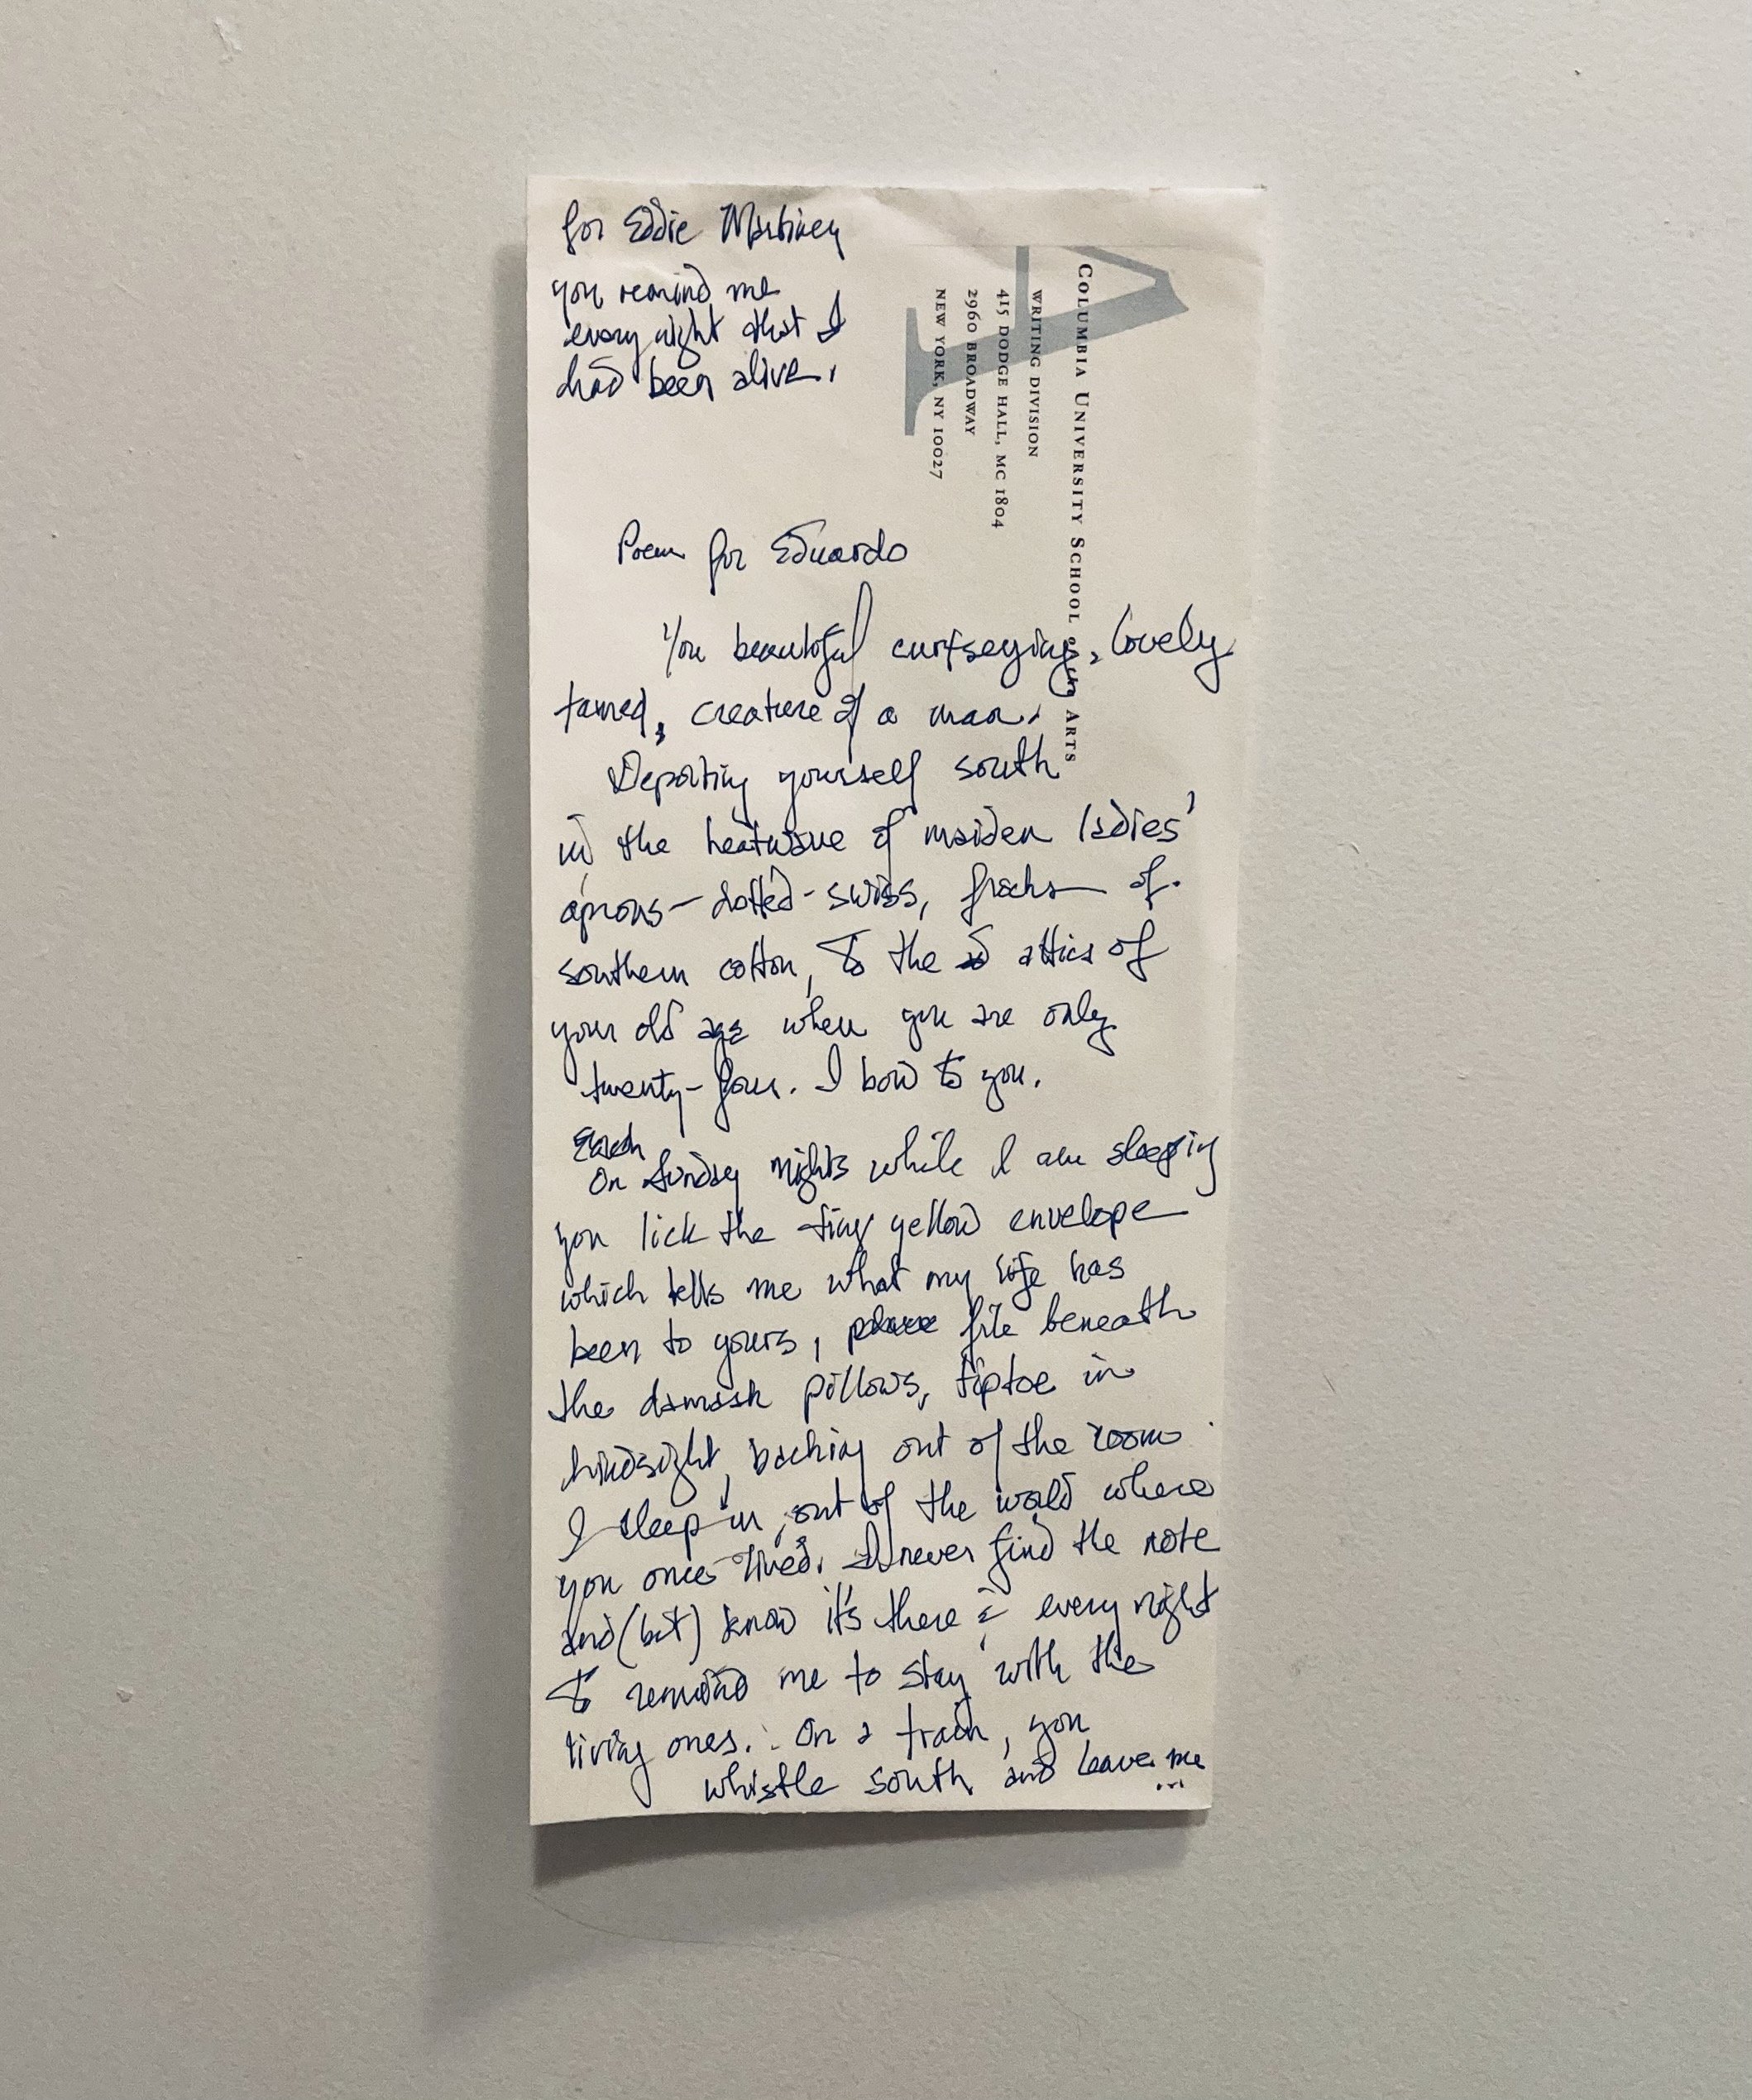 for Eddie Martinez
you remind me
every night that I
had been alive.
COLUMBIA UNIVERSITY SCHOOL OF THE ARTS
WRITING DIVISION
415 DODGE HALL, MC 1804
2960 BROADWAY
NEW YORK, NY 10027
Poem for Eduardo
You beautiful curtseying, lovely
tamed, creature of a man.
Deporting yourself south
in the heatwave of maiden ladies'
aprons—dotted-swiss, frocks of
southern cotton, to the attics of
your old age when you are only
twenty-four. I bow to you.
Each
On Sunday nights while I am sleeping
you lick the tiny yellow envelope
which tells me what my life has
been to yours, file beneath
the damask pillows, tiptoe in
hindsight, backing out of the room
I sleep in, out of the world where
you once lived. I never find the note
and (but) know it's there & every night
to remind me to stay with the
living ones. On a train, you
whistle south and leave me
...